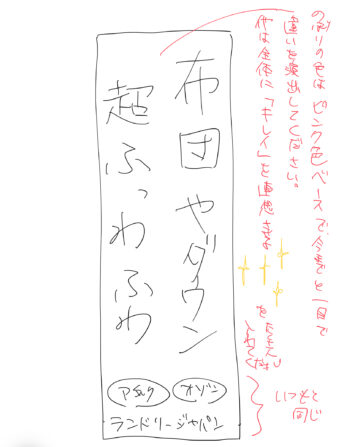 のぼりの色はピンク色ベースで、今までと一目で
違いを演出してください。
後は全体に「キレイ」を連想させる
を
たくさん
入れてください
布団やダウン
超ふっわふわ
オゾン
アタック
ランドリージャパン
いつもと
同じ